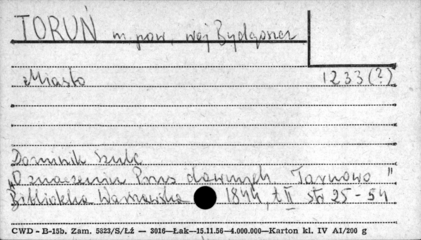 TORUŃ m. pow. woj Bydgoszcz
Miasto 1233(?)
Dominik Szulc
„O znaczeniu Prus dawnych Tarnowo”
Biblioteka Warszawska 1844, t II str 25-54
CWD - B-15b. Zam. 5323/S/Łż — 3016—Łak—15.11.56—4.000.000—Karton kl. IV A1/200 g